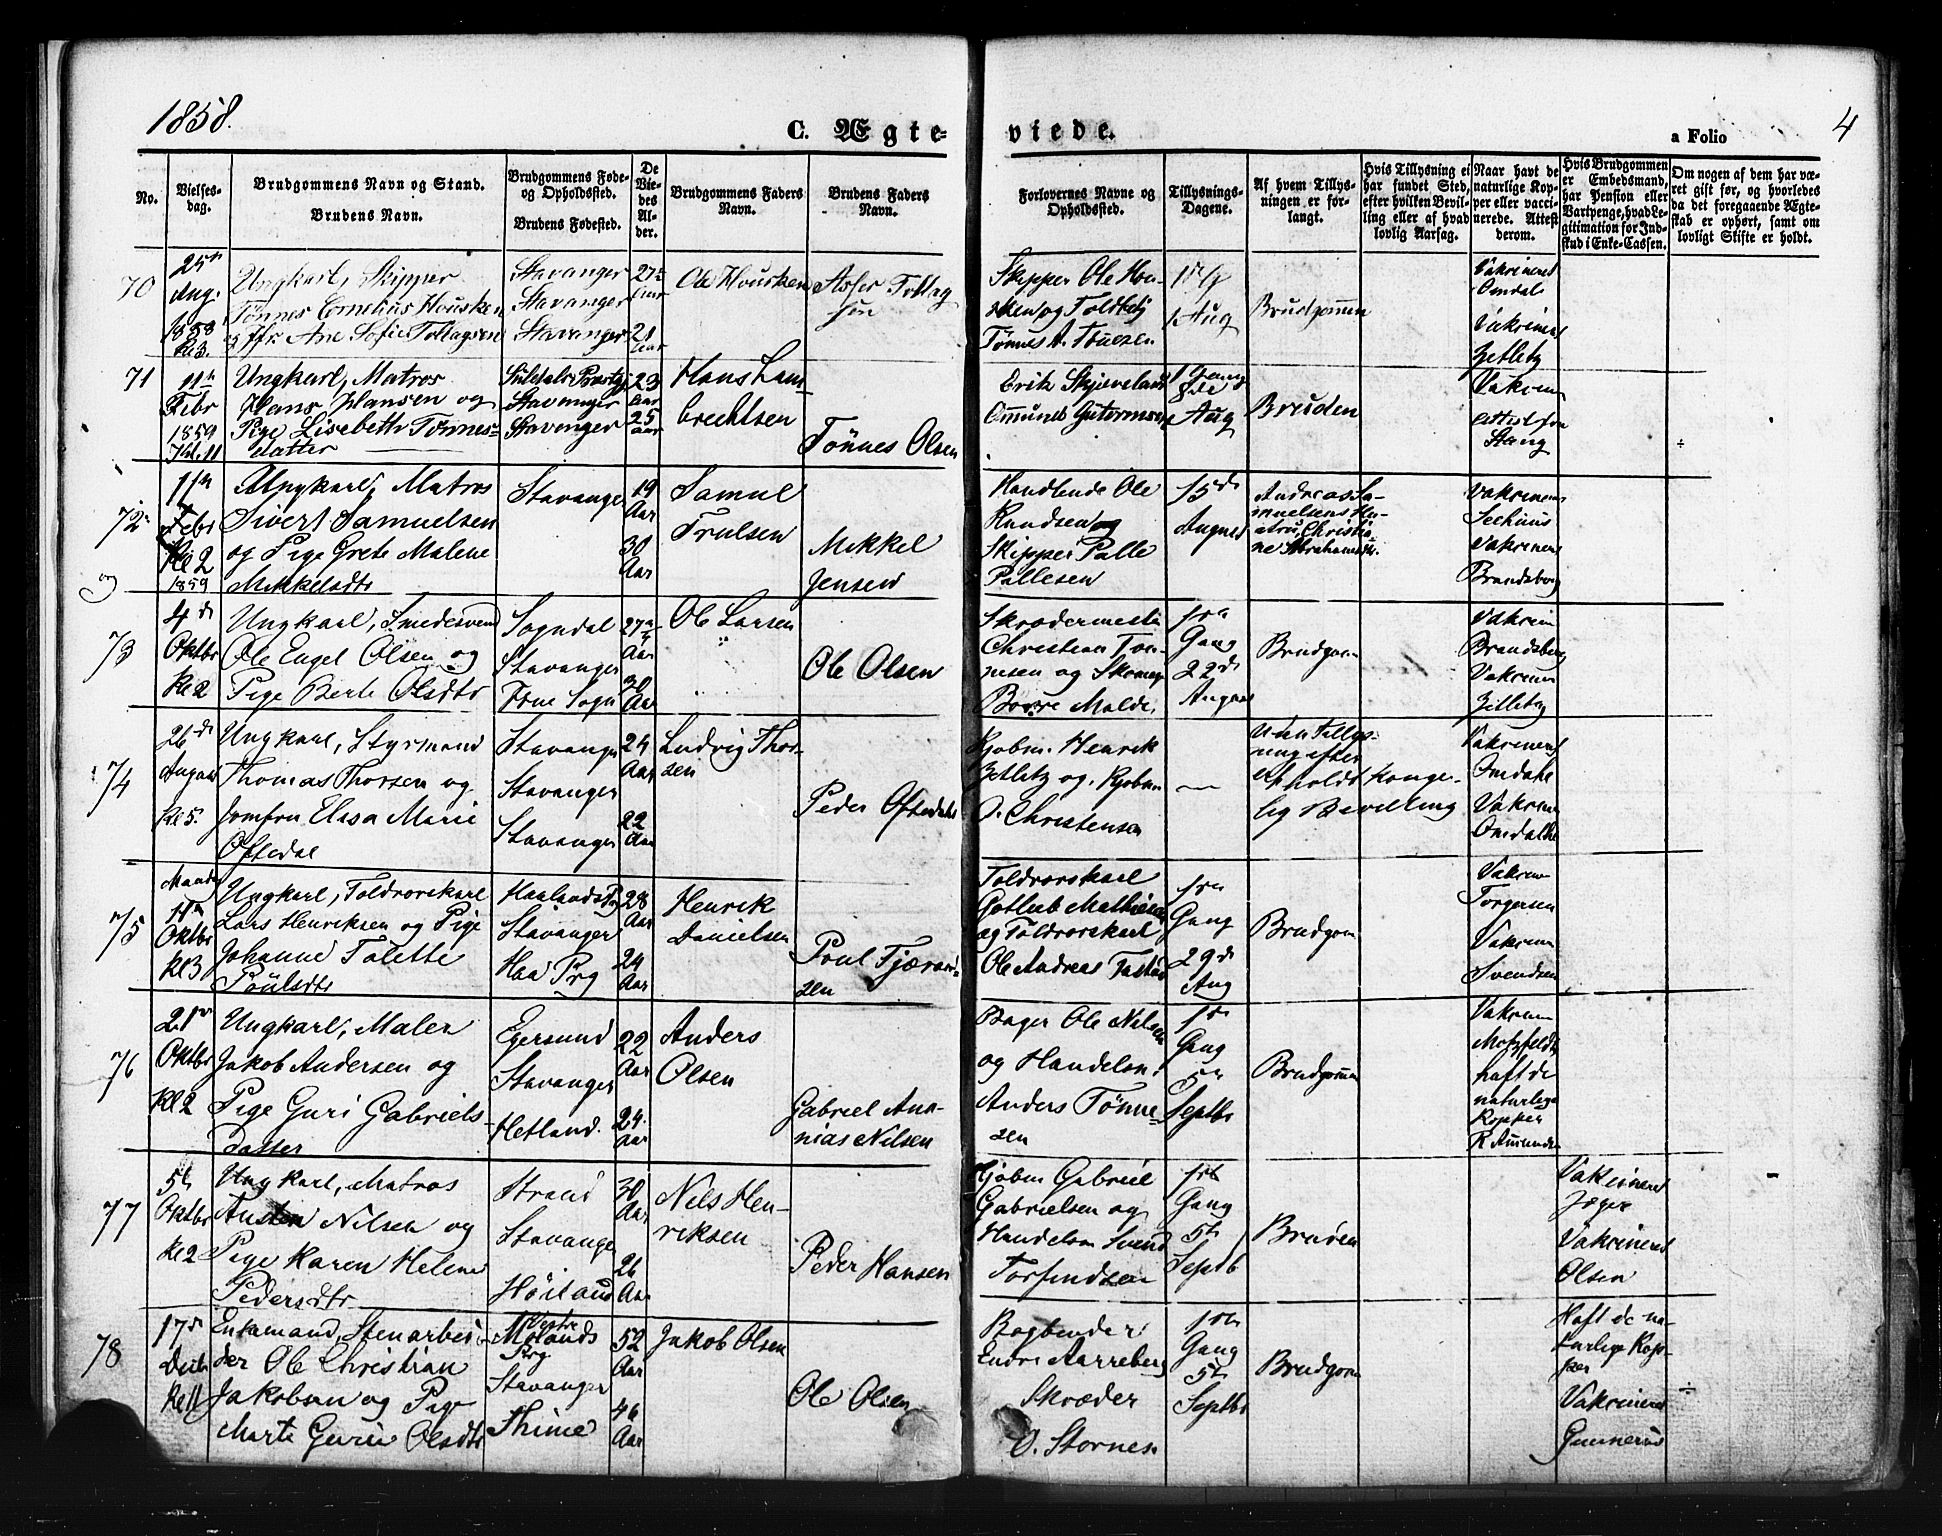 1858.
C. Ægte-
viede.
a Folio
4
No.
Vielses-
dag.
Brudgommens Navn og Stand.
Brudens Navn.
Brudgommens Føde-
og Opholdssted.
Brudens Fødested.
De
Vie-
des
Al-
der.
Brudgommens Faders
Navn.
Brudens Faders
Navn.
Forlovernes Navne og
Opholdssted.
Tillysnings-
Dagene.
Af hvem Tillys-
ningen er for-
langt.
Hvis Tillysning ei
har fundet Sted,
efter hvilken Bevil-
ling eller af hvad
lovlig Aarsag.
Naar havt de
naturlige Kop-
per eller vacci-
nerede. Attest
derom.
Hvis Brudgommen
er Embedsmand,
har Pension eller
Vartpenge, hvad Le-
gitimation for Ind-
skud i Enke-Cassen.
Om nogen af dem har væ-
ret gift før, og hvorledes
da det foregaaende Ægte-
skab er ophørt, samt om
lovligt Skifte er holdt.
70
25de
Aug.
1858
Kl 3.
Ungkarl, Skipper
Tønnes Cornelius Housken
og Jfr. Ane Sofie Tollagsen
Stavanger
Stavanger
Stavanger
27
Aar
21
Aar
Ole Housken
Asser Tollag
sen
Skipper Ole Hou-
sken og Toldbetj
Tønnes A.
1ste G
1 Aug
Brudgommen
Vakcineret
Omdal
Vakcineret
Zetlitz
71
11te
Febr
1859
Kl. 11
Ungkarl, Matros
Hans Hansen og
Pige Lisebeth Tønnes-
datter
Suledals Præstg
Stavanger
Stavanger
23
Aar
25
Aar
Hans Lam
brechtsen
Tønnes Olsen
Erik Skjæveland
Omund Gutormsen
1 Gang
8de
Aug
Bruden
Vakcin
attest fra
Stang
÷
72
11te
Febr
Kl 2
1859
Ungkarl, Matros
Sivert Samuelsen
og Pige Grete Malene
Mikkelsdtr
Stavanger
19
Aar
30
Aar
Samuel
Trulsen
Mikkel
Jensen
Handlende Ole
Knudsen og
Skipper Palle
Pallesen
15de
August
Andreas Sa-
muelsens Hu-
stru, Christia-
ne Abrahamsdtr.
Vakcineret
Seehuus
Vakcineret
Brandsberg
73
4de
Oktbr
Kl 2
Ungkarl, Smedesvend
Ole Engel Olsen og
Pige Berte Olsdtr
Sogndal
Stavanger
Frue Sogn
27
Aar
30
Aar
Ole Larsen
Ole Olsen
Skrædermester
Christian Ton-
nesen og
Børre Malde.
1ste
Gang
22de
August
Brudgom
Vakcin
Brandsberg
Vakcineret
Zetlitz
74
26de
August
Kl 5.
Ungkarl, Styrmand
Thomas Thorsen og
Jomfru Elisa Marie
Oftedal
Stavanger
Stavanger
Stavanger
24
Aar
22
Aar
Ludvig Thor-
sen
Peder Oftedahl
Kjøbm. Henrik
Zetlitz og Kjøbm
O. Christensen
—
Uden Tillys-
ning efter
erholdt Konge-
lig Bevilling
Vakcineret
Omdahl
Vakcineret
Omdahl
75
Mandag
11te
Oktbr
Kl 3
Ungkarl, Toldrorskarl
Lars Henriksen og Pige
Johanne Tolette
Poulsdtr
Haalands Prg
Stavanger
Haa Prg
28
Aar
24
Aar
Henrik
Danielsen
Poul Fjærmed-
sen
Toldrorskarl
Gotlieb Mathiesen
og Toldrorskarl
Ole Andreas Tastad
1ste
Gang
29de
Aug
Brudgom
Vakcin
Torgersen
Vakcin
Svendsen
76
21de
Oktbr
Kl 2
Ungkarl, Maler
Jakob Andersen og
Pige Guri Gabriels-
datter
Egersund
Stavanger
Hetland.
22
Aar
24.
Aar
Anders
Olsen
Gabriel Ana-
nias Nilsen
Bager Ole Nilsen
og Handelsm.
Anders Tønne-
sen
1ste
Gang
5te
Septbr
Brudgommen
Vakcin
Motzfeldt
haft de
naturlige
Kopper
R Amundsen
77
5te
Oktbr
Kl 2
Ungkarl, Matros
Austen Nilsen og
Pige Karen Helene
Pedersdtr
Strand
Stavanger
Høiland
30
Aar
26
Aar
Nils Hen-
riksen
Peder Hansen
Kjøbm Gabriel
Gabrielsen og
Handelsm Svend
Torfindsen
1ste
Gang
5te
Septbr
Bruden
Vakcineret
Jæger
Vakcineret
Olsen
-
78
17de
Decbr
Kl 11
Enkemand, Stenarbei-
der Ole Christian
Jakobsen og Pige
Marte Guri Olsdtr
Vestre
Molands
Prg
Stavanger
Thime
52
Aar
46
Aar
Jakob Olsen
Ole Olsen
Bogbinder
Endre Aarreberg
Skræder
O. Stornes.
1ste
Gang
5te
Septbr
Brudgom
Haft de na-
turlige Kop-
per
Vakcineret
Gunnerus
÷